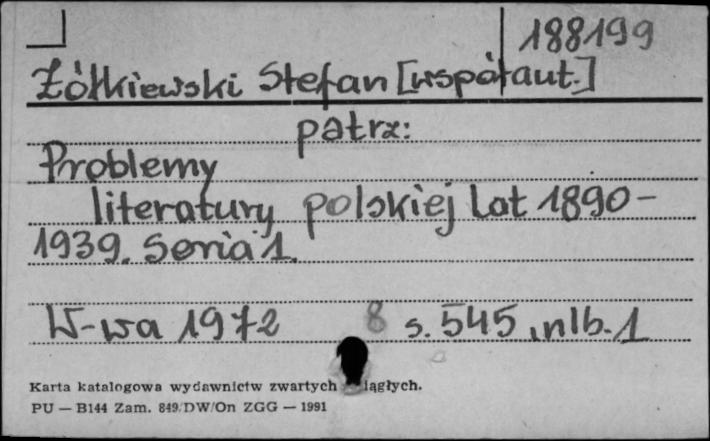 188199
Żółkiewski Stefan [współaut.]
patrz:
Problemy
literatury polskiej lat 1890-
1939. Seria 1.
W-wa 1972 8 s. 545, nlb. 1
Karta katalogowa wydawnictw zwartych iągłych.
PU — B144 Zam. 849/DW/On ZGG — 1991